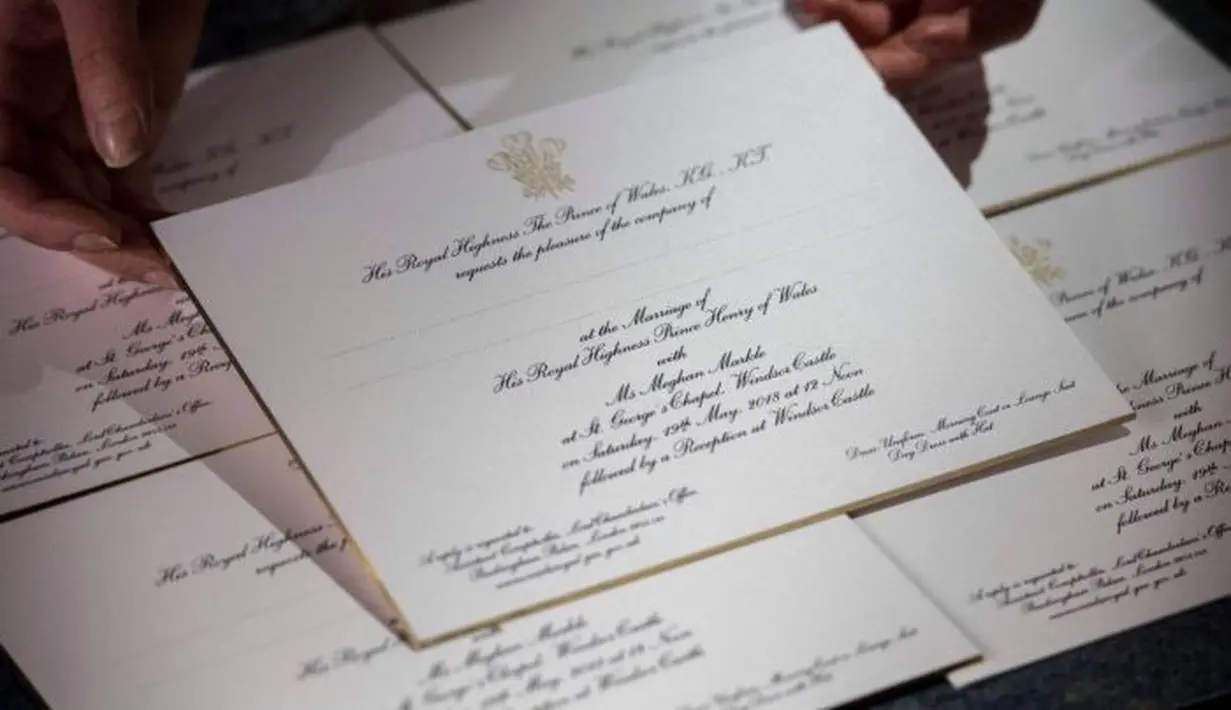 His Royal Highness The Prince of Wales, K.G., K.T.
requests the pleasure of the company of
at the Marriage of
His Royal Highness Prince Henry of Wales
with
Ms Meghan Markle
at St. George's Chapel, Windsor Castle
on Saturday, 19th May, 2018 at 12 Noon
followed by a Reception at Windsor Castle
Dress: Uniform, Morning Coat or Lounge Suit
Day Dress with Hat
A reply is requested to:
Assistant Comptroller, Lord Chamberlain's Office,
Buckingham Palace, London
His Royal High
Ms Megh
at St. George's Cha
on Saturday, 19th
followed by a Rece
Lord Chamberlain's Office,
Buckingham Palace, London
His Royal Highness
requests the p
Ms Meghan Markle
George's Chapel, Windsor Castle
19th May, 2018 at 12 Noon
by a Reception at Windsor Castle
Prince of Wales, K.G., K
re of the company of
the Marriage of
ghness Prince
with
Ms Meghan
at St. George's Chap
on Saturday, 19th
followed by a
A reply is requested to:
Assistant Comptroller, Lord Chamberlain's Office,
Buckingham Palace, London